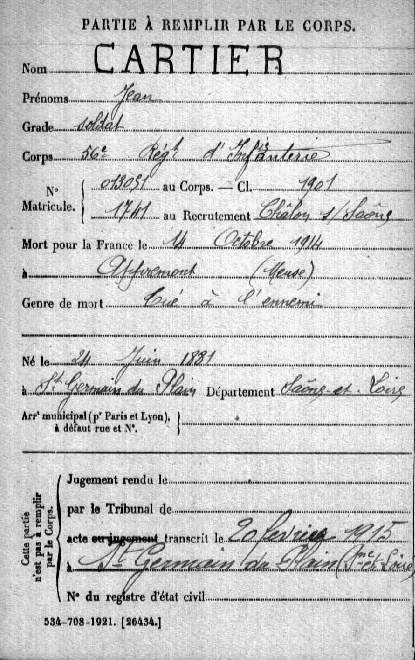 PARTIE À REMPLIR PAR LE CORPS.
Nom CARTIER
Prénoms Jean
Grade soldat
Corps 56e Régt d'Infanterie
N° Matricule. { 013051 au Corps. — Cl. 1901
1741 au Recrutement Châlon s/Saône
Mort pour la France le 14 Octobre 1914
à Apremont (Meuse)
Genre de mort Tué à l'ennemi
Né le 24 Juin 1881
à St Germain du Plain Département Saône-et-Loire
Arrt municipal (pr Paris et Lyon), à défaut rue et N°. {
Cette partie n'est pas à remplir par le Corps. {
Jugement rendu le
par le Tribunal de
acte ou jugement transcrit le 20 février 1915
à St Germain du Plain (Sne-et-Loire)
N° du registre d'état civil
534-708-1921. [26434.]